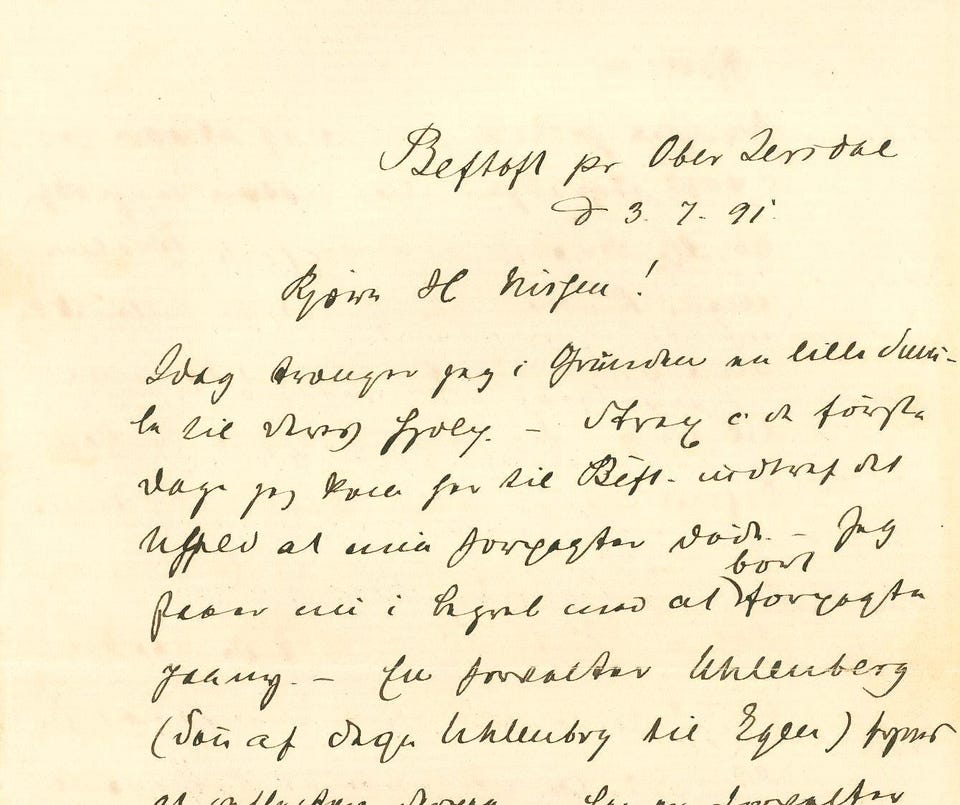 Beftoft pr Ober Jersdal
d 3. 7. 91.
Kjære H Nissen!
Idag trænger jeg i Grunden en lille Smu-
le til deres Hjælp. – Strax i de første
Dage jeg kom her til Beft. indtraf det
Uheld at min Forpagter døde. – Jeg
staaer nu i Begreb med at bort
forpagte
paany. – En Forvalter Uhlenberg
(Søn af Uhlenberg til Egen) synes